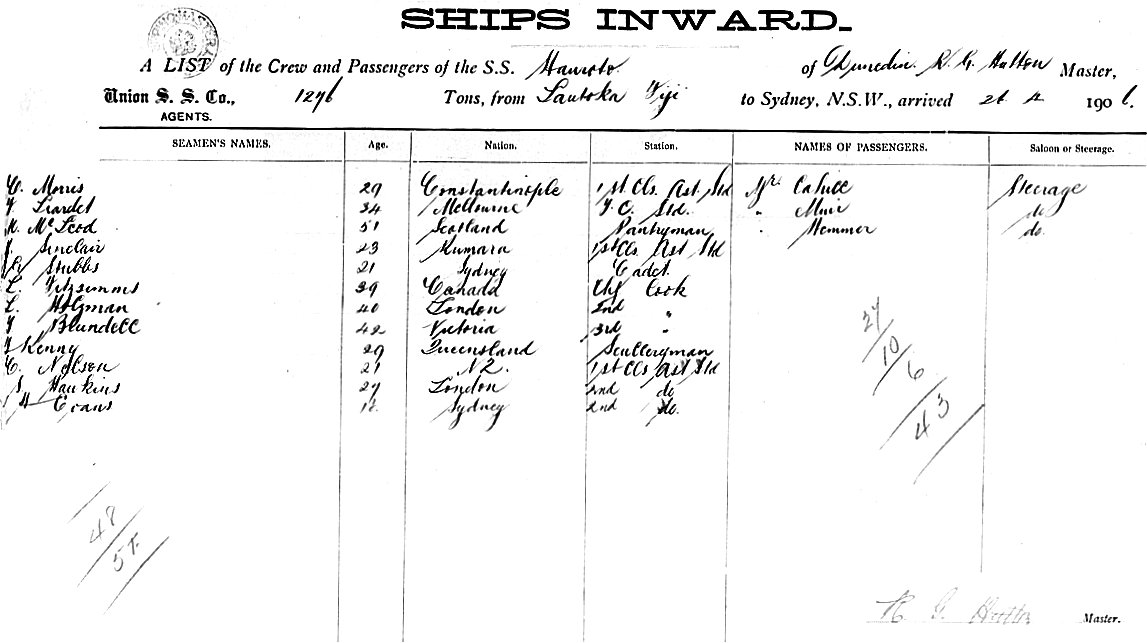 SHIPS INWARD.
A LIST of the Crew and Passengers of the S.S. Hauroto of Dunedin. R. G. Hutton Master,
Union S. S. Co., 1276 Tons, from Lautoka Fiji to Sydney, N.S.W., arrived 26 4 1906.
AGENTS.
SEAMEN'S NAMES. Age. Nation. Station. NAMES OF PASSENGERS. Saloon or Steerage.
C. Morris 29 Constantinople 1st Cls Ast Std Mr. Cahill Steerage
Liardet 34 Melbourne F. C. Std. " Muir do
McLeod 51 Scotland Pantryman " Hemmer do.
Sinclair 23 Kumara 1st Cls Ast Std
Stubbs 21 Sydney Cadet.
Fitzsimms 39 Canada Chf Cook
Holzman 40 London 2nd "
Blundell 42 Victoria 3rd "
Kenny 29 Queensland Sculleryman
C. Nelson 21 N Z. 1st Cls Ast Std
Hawkins 27 London 2nd do
Evans 18 Sydney 2nd do.
27
10
6
43
48
R G Hutton Master.